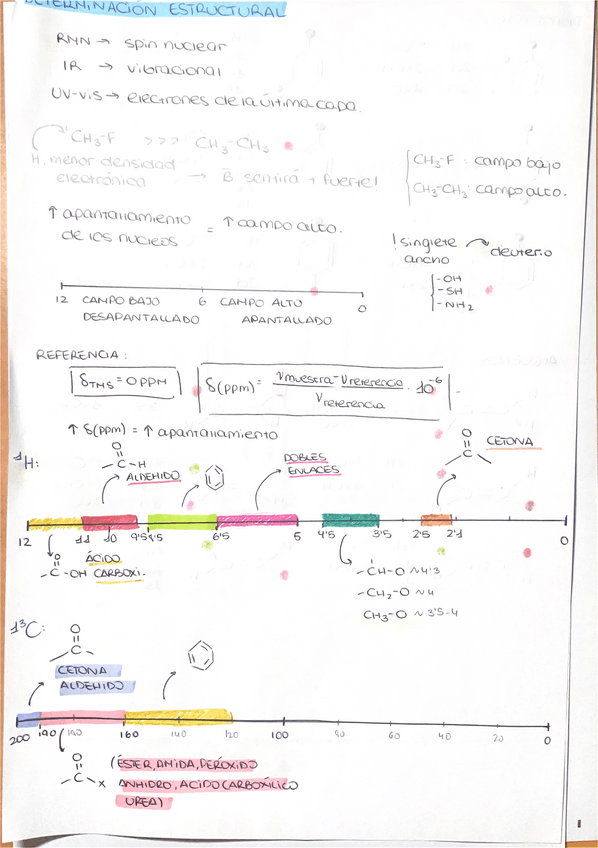 DETERMINACIÓN ESTRUCTURAL
RMN → spin nuclear
IR → vibracional
UV-vis → electrones de la última capa.
CH3-F >>> CH3-CH3
H, menor densidad
electrónica → B sentirá + fuerte!
CH3-F : campo bajo
CH3-CH3: campo alto.
↑ apantallamiento
de los nucleos = ↑ campo alto.
! singlete
ancho → deuterio
-OH
-SH
-NH2
12 CAMPO BAJO 6 CAMPO ALTO 0
DESAPANTALLADO APANTALLADO
REFERENCIA:
δTMS = 0 PPM
δ(ppm) = νmuestra - νreferencia / νreferencia · 10-6
↑ δ(ppm) = ↑ apantallamiento
1H:
O
-C-H
ALDEHIDO
DOBLES
ENLACES
O
C
CETONA
12 11 10 9'5 8'5 6'5 5 4'5 3'5 2'5 2'1 0
O
-C-OH
ÁCIDO
CARBOXI.
-CH-O ~4'3
-CH2-O ~4
CH3-O ~3'5-4
13C:
O
C
CETONA
ALDEHIDO
200 190 180 160 140 120 100 80 60 40 20 0
O
C x
(ÉSTER, AMIDA, PERÓXIDO
ANHIDRO, ACIDO CARBOXÍLICO
UREA)